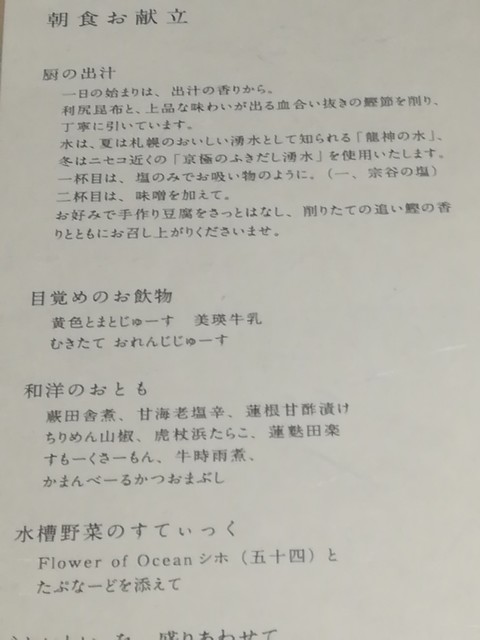 朝食お献立
厨の出汁
一日の始まりは、出汁の香りから。
利尻昆布と、上品な味わいが出る血合い抜きの鰹節を削り、
丁寧に引いています。
水は、夏は札幌のおいしい湧水として知られる「龍神の水」、
冬はニセコ近くの「京極のふきだし湧水」を使用いたします。
一杯目は、塩のみでお吸い物のように。(一、宗谷の塩)
二杯目は、味噌を加えて。
お好みで手作り豆腐をさっとはなし、削りたての追い鰹の香
りとともにお召し上がりくださいませ。
目覚めのお飲物
黄色とまとじゅーす　美瑛牛乳
むきたて おれんじじゅーす
和洋のおとも
蕨田舎煮、甘海老塩辛、蓮根甘酢漬け
ちりめん山椒、虎杖浜たらこ、蓮麩田楽
すもーくさーもん、牛時雨煮、
かまんべーるかつおまぶし
水槽野菜のすてぃっく
Flower of Ocean シホ(五十四)と
たぷなーどを添えて
盛りあわせて